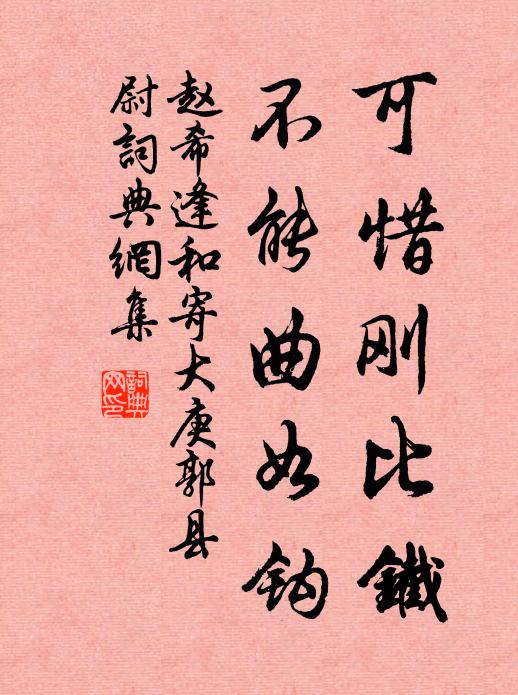 可惜刚比鐵
不能曲如钩
赵希逢和寄大庾郭县
尉詞典網集
詞典網印